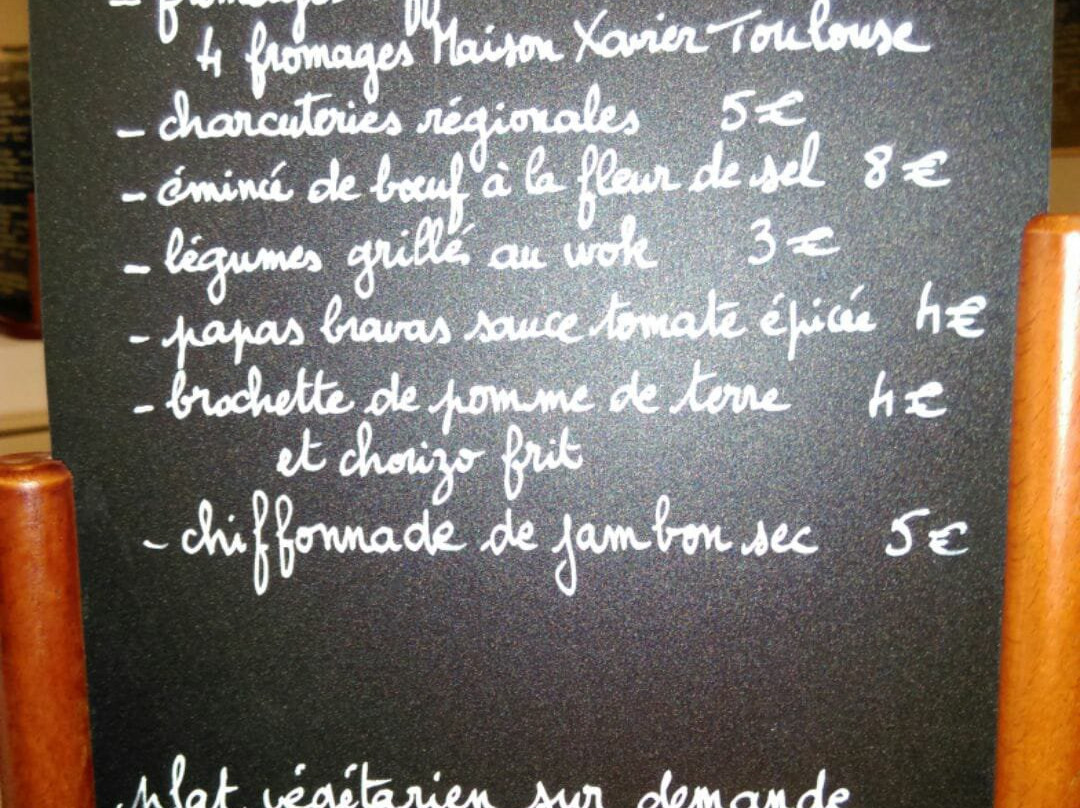 - fromages
4 fromages Maison Xavier Toulouse
- charcuteries régionales 5€
- émincé de bœuf à la fleur de sel 8€
- légumes grillé au wok 3€
- papas bravas sauce tomate épicée 4€
- brochette de pomme de terre 4€
et chorizo frit
- chiffonnade de jambon sec 5€
plat végétarien sur demande